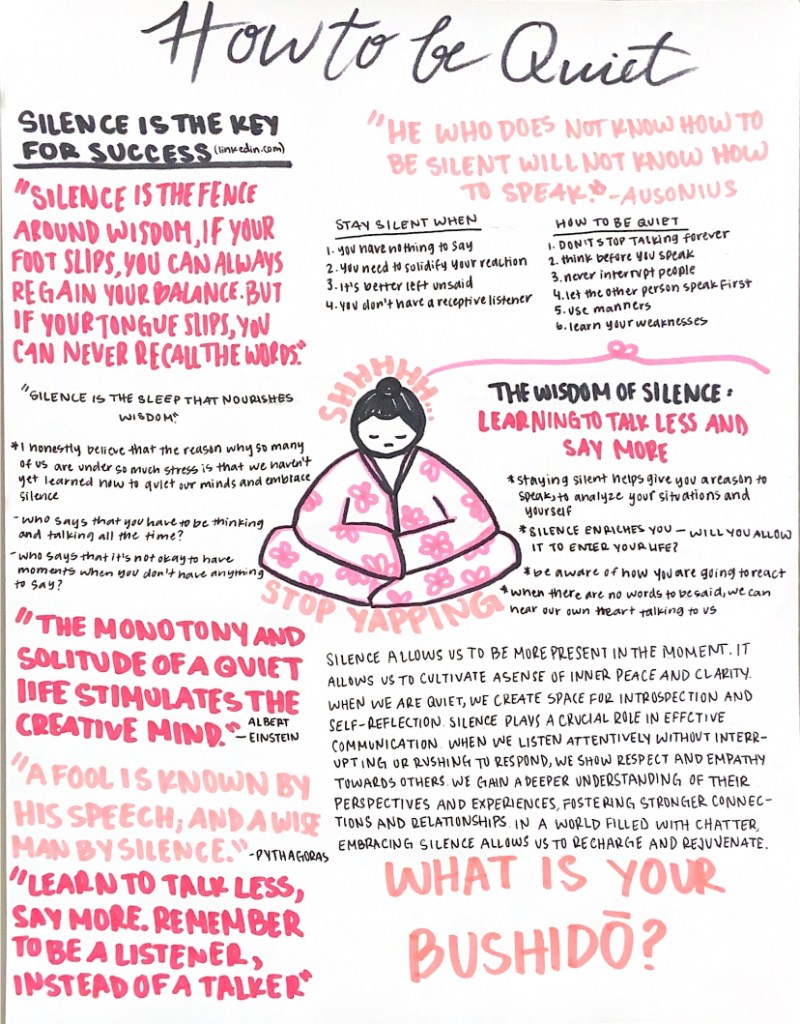 How to be Quiet
SILENCE IS THE KEY
FOR SUCCESS (linkedin.com)
"SILENCE IS THE FENCE
AROUND WISDOM, IF YOUR
FOOT SLIPS, YOU CAN ALWAYS
REGAIN YOUR BALANCE. BUT
IF YOUR TONGUE SLIPS, YOU
CAN NEVER RECALL THE WORDS."
"SILENCE IS THE SLEEP THAT NOURISHES
WISDOM."
*I honestly believe that the reason why so many
of us are under so much stress is that we haven't
yet learned how to quiet our minds and embrace
silence
- who says that you have to be thinking
and talking all the time?
- who says that it's not okay to have
moments when you don't have anything
to say?
"THE MONOTONY AND
SOLITUDE OF A QUIET
lIFE STIMULATES THE
CREATIVE MIND." - ALBERT
EINSTEIN
"A FOOL IS KNOWN BY
HIS SPEECH; AND A WISE
MAN BY SILENCE." -PYTHAGORAS
"LEARN TO TALK LESS,
SAY MORE. REMEMBER
TO BE A LISTENER,
INSTEAD OF A TALKER"
"HE WHO DOES NOT KNOW HOW TO
BE SILENT WILL NOT KNOW HOW
TO SPEAK." -AUSONIUS
STAY SILENT WHEN
1. you have nothing to say
2. you need to solidify your reaction
3. it's better left unsaid
4. you don't have a receptive listener
HOW TO BE QUIET
1. DON'T STOP TALKING forever
2. think before you speak
3. never interrupt people
4. let the other person speak first
5. use manners
6. learn your weaknesses
SHHHHH...
STOP YAPPING
THE WISDOM OF SILENCE:
LEARNING TO TALK LESS AND
SAY MORE
*staying silent helps give you a reason to
speak, to analyze your situations and
yourself
*SILENCE ENRICHES YOU — WILL YOU ALLOW
IT TO ENTER YOUR LIFE?
*be aware of how you are going to react
*when there are no words to be said, we can
hear our own heart talking to us
SILENCE ALLOWS US TO BE MORE PRESENT IN THE MOMENT. IT
ALLOWS US TO CULTIVATE A SENSE OF INNER PEACE AND CLARITY.
WHEN WE ARE QUIET, WE CREATE SPACE FOR INTROSPECTION AND
SELF-REFLECTION. SILENCE PLAYS A CRUCIAL ROLE IN EFFCTIVE
COMMUNICATION. WHEN WE LISTEN ATTENTIVELY WITHOUT INTERR-
UPTING OR RUSHING TO RESPOND, WE SHOW RESPECT AND EMPATHY
TOWARDS OTHERS. WE GAIN A DEEPER UNDERSTANDING OF THEIR
PERSPECTIVES AND EXPERIENCES, FOSTERING STRONGER CONNEC-
TIONS AND RELATIONSHIPS. IN A WORLD FILLED WITH CHATTER,
EMBRACING SILENCE ALLOWS US TO RECHARGE AND REJUVENATE.
WHAT IS YOUR
BUSHIDŌ?